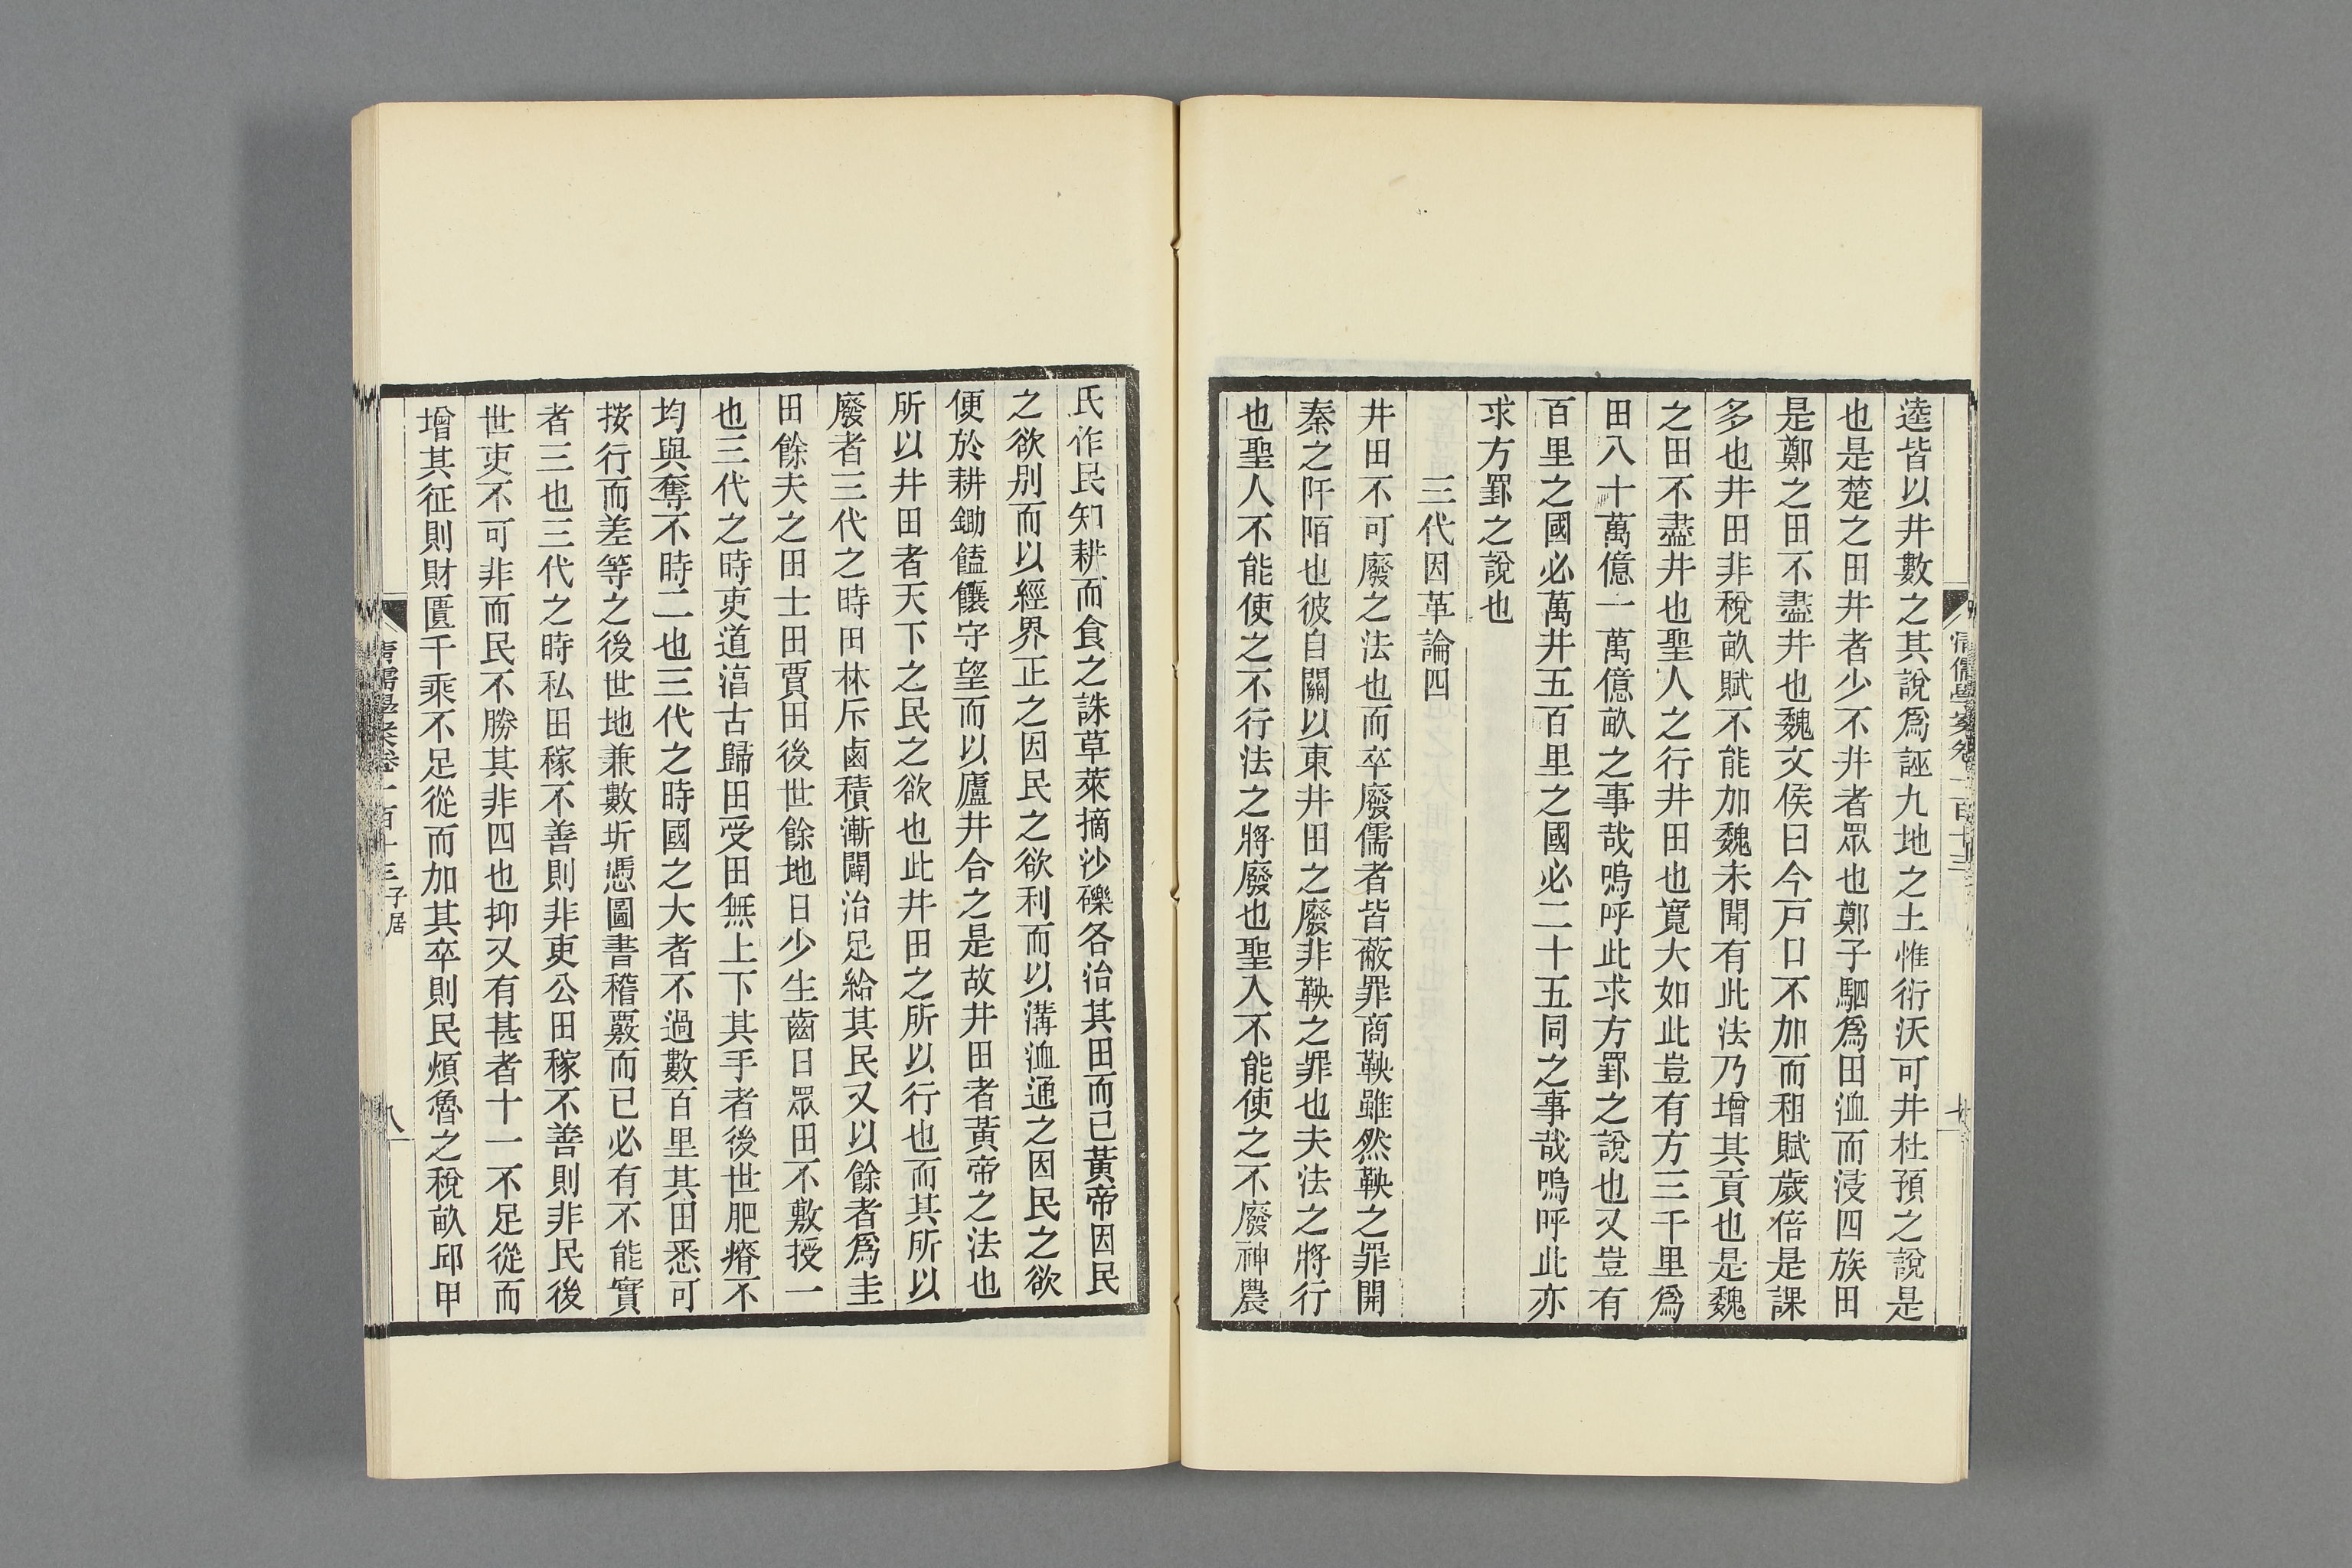 逵皆以井數之其說爲誣九地之土惟衍沃可井杜預之說是
也是楚之田井者少不井者眾也鄭子駟爲田洫而浸四族田
是鄭之田不盡井也魏文侯曰今戸口不加而租賦歲倍是課
多也井田非稅畝賦不能加魏未聞有此法乃增其貢也是魏
之田不盡井也聖人之行井田也寬大如此豈有方三千里爲
田八十萬億一萬億畝之事哉嗚呼此求方罫之說也又豈有
百里之國必萬井五百里之國必二十五同之事哉嗚呼此亦
求方罫之說也
三代因革論四
井田不可廢之法也而卒廢儒者皆蔽罪商鞅雖然鞅之罪開
秦之阡陌也彼自關以東井田之廢非鞅之罪也夫法之將行
也聖人不能使之不行法之將廢也聖人不能使之不廢神農
氏作民知耕而食之誅草萊摘沙礫各治其田而已黃帝因民
之欲別而以經界正之因民之欲利而以溝洫通之因民之欲
便於耕鋤饁饟守望而以廬井合之是故井田者黃帝之法也
所以井田者天下之民之欲也此井田之所以行也而其所以
廢者三代之時田林斥鹵積漸闢治足給其民又以餘者爲圭
田餘夫之田士田賈田後世餘地日少生齒日眾田不敷授一
也三代之時吏道湻古歸田受田無上下其手者後世肥瘠不
均與奪不時二也三代之時國之大者不過數百里其田悉可
按行而差等之後世地兼數圻憑圖書稽覈而已必有不能實
者三也三代之時私田稼不善則非吏公田稼不善則非民後
世吏不可非而民不勝其非四也抑又有甚者十一不足從而
增其征則財匱千乘不足從而加其卒則民煩魯之稅畝邱甲
清儒學案卷一百十三 子居
八